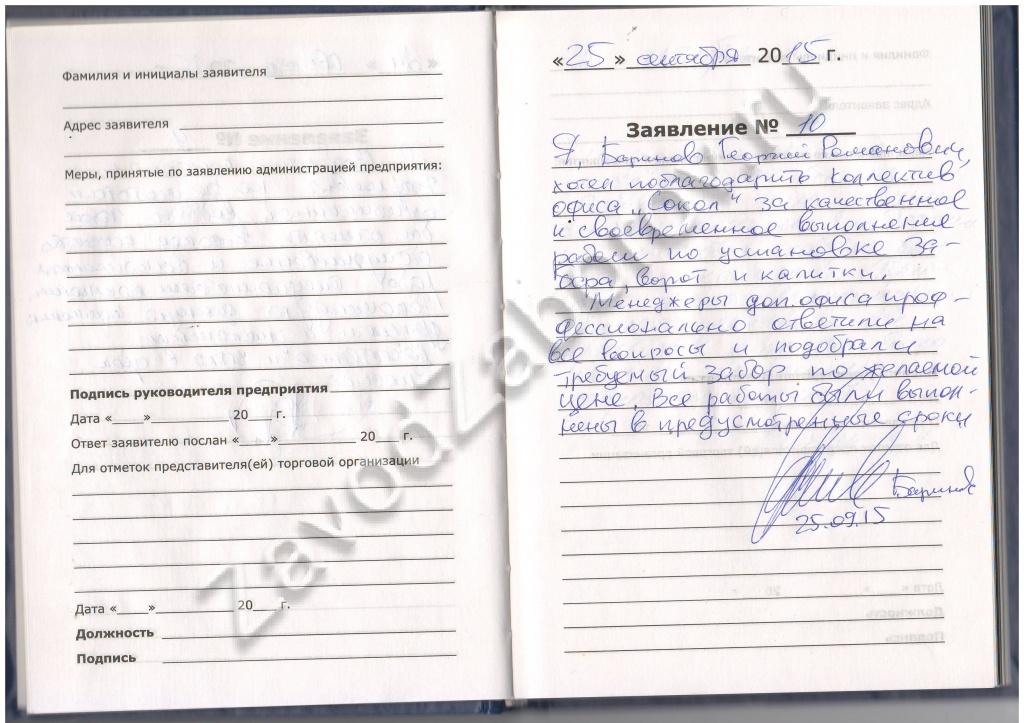 Фамилия и инициалы заявителя
Адрес заявителя
Меры, принятые по заявлению администрацией предприятия:
Подпись руководителя предприятия
Дата «____»____________ 20___ г.
Ответ заявителю послан «____»____________ 20___ г.
Для отметок представителя(ей) торговой организации
Дата «____»____________ 20___ г.
Должность
Подпись
«25» сентября 2015 г.
Заявление № 10
Я Баринов Георгий Романович,
хотел поблагодарить коллектив
офиса „Сокол" за качественное
и своевременное выполнения
работ по установке за-
бора, ворот и калитки.
Менеджеры доп.офиса проф-
фессионально ответили на
все вопросы и подобрали
требуемый забор по желаемой
цене. Все работы были выпол-
нены в предусмотренные сроки
Баринов
25.09.15
ZavodZaborov.ru